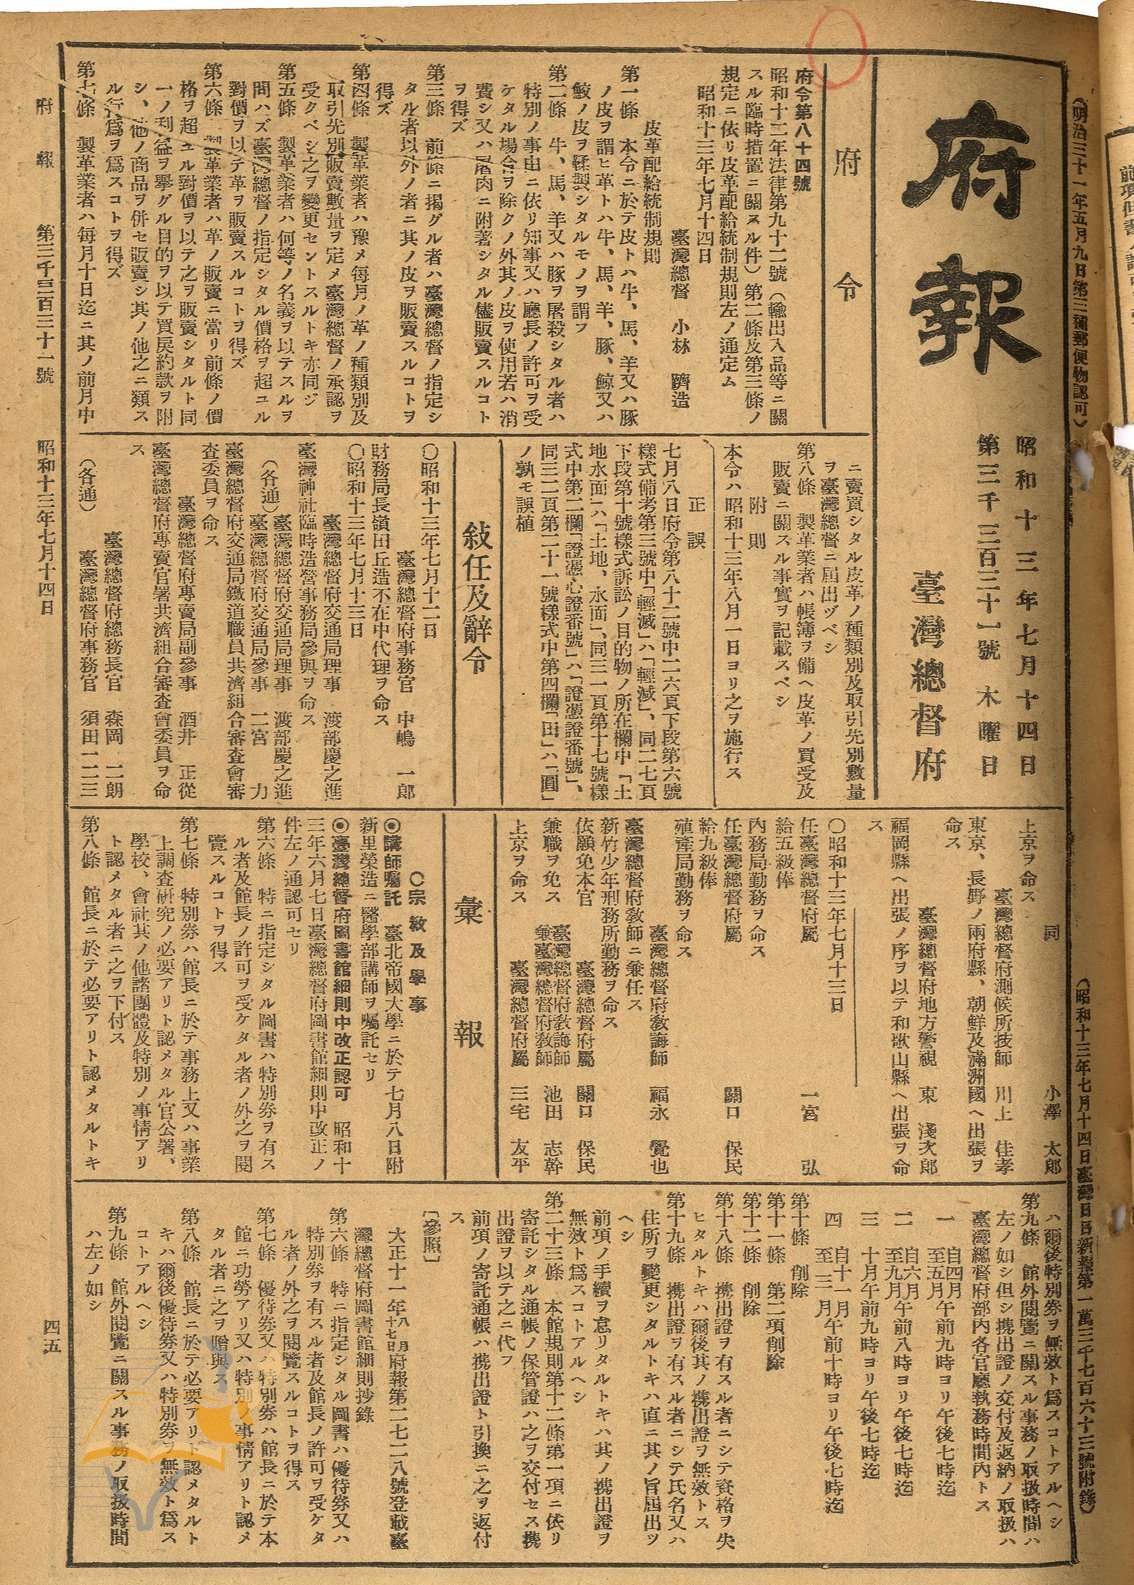 (明治三十一年五月九日第三種郵便物認可)
(昭和十三年七月十四日臺灣日日新報第一萬三千七百六十三號附錄)
府報
昭和十三年七月十四日
第三千三百三十一號 木曜日
臺灣總督府
府令
府令第八十四號
昭和十二年法律第九十二號(輸出入品等ニ關
スル臨時措置ニ關スル件)第二條及第三條ノ
規定ニ依リ皮革配給統制規則左ノ通定ム
昭和十三年七月十四日
臺灣總督 小林 躋造
皮革配給統制規則
第一條 本令ニ於テ皮トハ牛、馬、羊又ハ豚
ノ皮ヲ謂ヒ革トハ牛、馬、羊、豚、鯨又ハ
鮫ノ皮ヲ鞣製シタルモノヲ謂フ
第二條 牛、馬、羊又ハ豚ヲ屠殺シタル者ハ
特別ノ事由ニ依リ知事又ハ廳長ノ許可ヲ受
ケタル場合ヲ除クノ外其ノ皮ヲ使用若ハ消
費シ又ハ屠肉ニ附著シタル儘販賣スルコト
ヲ得ズ
第三條 前條ニ揭グル者ハ臺灣總督ノ指定シ
タル者以外ノ者ニ其ノ皮ヲ販賣スルコトヲ
得ズ
第四條 製革業者ハ豫メ每月ノ革ノ種類別及
取引先別販賣數量ヲ定メ臺灣總督ノ承認ヲ
受クベシ之ヲ變更セントスルトキ亦同ジ
第五條 製革業者ハ何等ノ名義ヲ以テスルヲ
問ハズ臺灣總督ノ指定シタル價格ヲ超ユル
對價ヲ以テ革ヲ販賣スルコトヲ得ズ
第六條 製革業者ハ革ノ販賣ニ當リ前條ノ價
格ヲ超ユル對價ヲ以テ之ヲ販賣シタルト同
一ノ利益ヲ擧グル目的ヲ以テ買戾約款ヲ附
シ、他ノ商品ヲ併セ販賣シ其ノ他之ニ類ス
ル行爲ヲ爲スコトヲ得ズ
第七條 製革業者ハ每月十日迄ニ其ノ前月中
ニ賣買シタル皮革ノ種類別及取引先別數量
ヲ臺灣總督ニ屆出ヅベシ
第八條 製革業者ハ帳簿ヲ備ヘ皮革ノ買受及
販賣ニ關スル事實ヲ記載スベシ
附則
本令ハ昭和十三年八月一日ヨリ之ヲ施行ス
正誤
七月八日府令第八十二號中二六頁下段第六號
樣式備考第三號中「輕減」ハ「輕減」、同二七頁
下段第十號樣式訴訟ノ目的物ノ所在欄中「土
地水面」ハ「土地、水面」、同三一頁第十七號樣
式中第二欄「證憑心證番號」ハ「證憑證番號」、
同三二頁第二十一號樣式中第四欄「田」ハ「圓」
ノ孰モ誤植
敍任及辭令
○昭和十三年七月十二日
臺灣總督府事務官 中嶋 一郎
財務局長嶺田丘造不在中代理ヲ命ス
○昭和十三年七月十三日
臺灣總督府交通局理事 渡部慶之進
臺灣神社臨時造營事務局參與ヲ命ス
臺灣總督府交通局理事 渡部慶之進
(各通)臺灣總督府交通局參事 二宮 力
臺灣總督府交通局鐵道職員共濟組合審査會審
査委員ヲ命ス
臺灣總督府專賣局副參事 酒井 正從
臺灣總督府專賣官署共濟組合審査會委員ヲ命
ス
臺灣總督府總務長官 森岡 二朗
(各通) 臺灣總督府事務官 須田一二三
同 小澤 太郎
上京ヲ命ス
臺灣總督府測候所技師 川上 佳孝
東京、長野ノ兩府縣、朝鮮及滿洲國ヘ出張ヲ
命ス
臺灣總督府地方警視 東 淺次郎
福岡縣ヘ出張ノ序ヲ以テ和歌山縣ヘ出張ヲ命
ス
○昭和十三年七月十三日
任臺灣總督府屬 一宮 弘
給五級俸
內務局勤務ヲ命ス
任臺灣總督府屬 關口 保民
給九級俸
殖產局勤務ヲ命ス
臺灣總督府敎誨師 福永 覺也
臺灣總督府敎師ニ兼任ス
新竹少年刑務所勤務ヲ命ス
臺灣總督府屬 關口 保民
依願免本官
臺灣總督府敎誨師
兼臺灣總督府敎師 池田 志幹
兼職ヲ免ス
臺灣總督府屬 三宅 友平
上京ヲ命ス
彙報
○宗敎及學事
◎講師囑託 臺北帝國大學ニ於テ七月八日附
新里榮造ニ醫學部講師ヲ囑託セリ
◎臺灣總督府圖書館細則中改正認可 昭和十
三年六月七日臺灣總督府圖書館細則中改正ノ
件左ノ通認可セリ
第六條 特ニ指定シタル圖書ハ特別券ヲ有ス
ル者及館長ノ許可ヲ受ケタル者ノ外之ヲ閱
覽スルコトヲ得ス
第七條 特別券ハ館長ニ於テ事務上又ハ事業
上調査硏究ノ必要アリト認メタル官公署、
學校、會社其ノ他諸團體及特別ノ事情アリ
ト認メタル者ニ之ヲ下付ス
第八條 館長ニ於テ必要アリト認メタルトキ
ハ爾後特別券ヲ無效ト爲スコトアルヘシ
第九條 館外閱覽ニ關スル事務ノ取扱時間ハ
左ノ如シ但シ携出證ノ交付及返納ノ取扱ハ
臺灣總督府部內各官廳執務時間內トス
一 自四月至五月 午前九時ヨリ午後七時迄
二 自六月至九月 午前八時ヨリ午後七時迄
三 十月午前九時ヨリ午後七時迄
四 自十一月至三月 午前十時ヨリ午後七時迄
第十條 削除
第十一條 第二項削除
第十二條 削除
第十八條 携出證ヲ有スル者ニシテ資格ヲ失
ヒタルトキハ爾後其ノ携出證ヲ無效トス
第十九條 携出證ヲ有スル者ニシテ氏名又ハ
住所ヲ變更シタルトキハ直ニ其ノ旨屆出ツ
ヘシ
前項ノ手續ヲ怠リタルトキハ其ノ携出證ヲ
無效ト爲スコトアルヘシ
第二十三條 本館規則第十二條第一項ニ依リ
寄託シタル通帳ノ保管證ハ之ヲ交付セス携
出證ヲ以テ之ニ代フ
前項ノ寄託通帳ハ携出證ト引換ニ之ヲ返付
ス
〔參照〕
大正十一年八月十七日府報第二七二八號登載臺
灣總督府圖書館細則抄錄
第六條 特ニ指定シタル圖書ハ優待券又ハ
特別券ヲ有スル者及館長ノ許可ヲ受ケタ
ル者ノ外之ヲ閱覽スルコトヲ得ス
第七條 優待券又ハ特別券ハ館長ニ於テ本
館ニ功勞アリ又ハ特別ノ事情アリト認メ
タル者ニ之ヲ贈與ス
第八條 館長ニ於テ必要アリト認メタルト
キハ爾後優待券又ハ特別券ヲ無效ト爲ス
コトアルヘシ
第九條 館外閱覽ニ關スル事務ノ取扱時間
ハ左ノ如シ
府報 第三千三百三十一號 昭和十三年七月十四日
四五